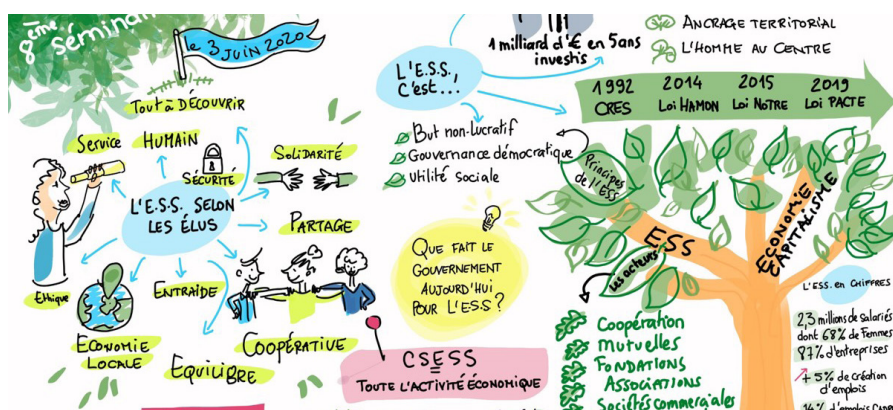 8ème Séminai
le 3 juin 2020
Tout à DÉCOUVRIR
Service
HUMAIN
SÉCURITÉ
SOLIDARITÉ
L'E.S.S. SELON
LES ÉLUS
PARTAGE
Ethique
ENTRAIDE
ECONOMIE
LOCALE
EQUILIBRE
COOPÉRATIVE
1 milliard d'€ en 5 ans
investis
L'E.S.S.,
C'est...
But non-lucratif
Gouvernance démocratique
Utilité sociale
QUE FAIT LE
GOUVERNEMENT
AUJOURD'HUI
POUR L'ESS ?
CSESS
TOUTE L'ACTIVITÉ ÉCONOMIQUE
ANCRAGE TERRITORIAL
L'HOMME AU CENTRE
1992
CRES
2014
Loi HAMON
2015
Loi NOTRE
2019
Loi PACTE
Principes
de l'ESS
ESS
ECONOMIE
CAPITALISME
Les acteurs
Coopération
Mutuelles
FONDATIONS
ASSOCIATIONS
Sociétés commerciales
L'ESS. en CHIFFRES
2,3 millions de salariés
dont 68% de Femmes
87% d'entreprises
+5% de création
d'emplois
14% d'emplois